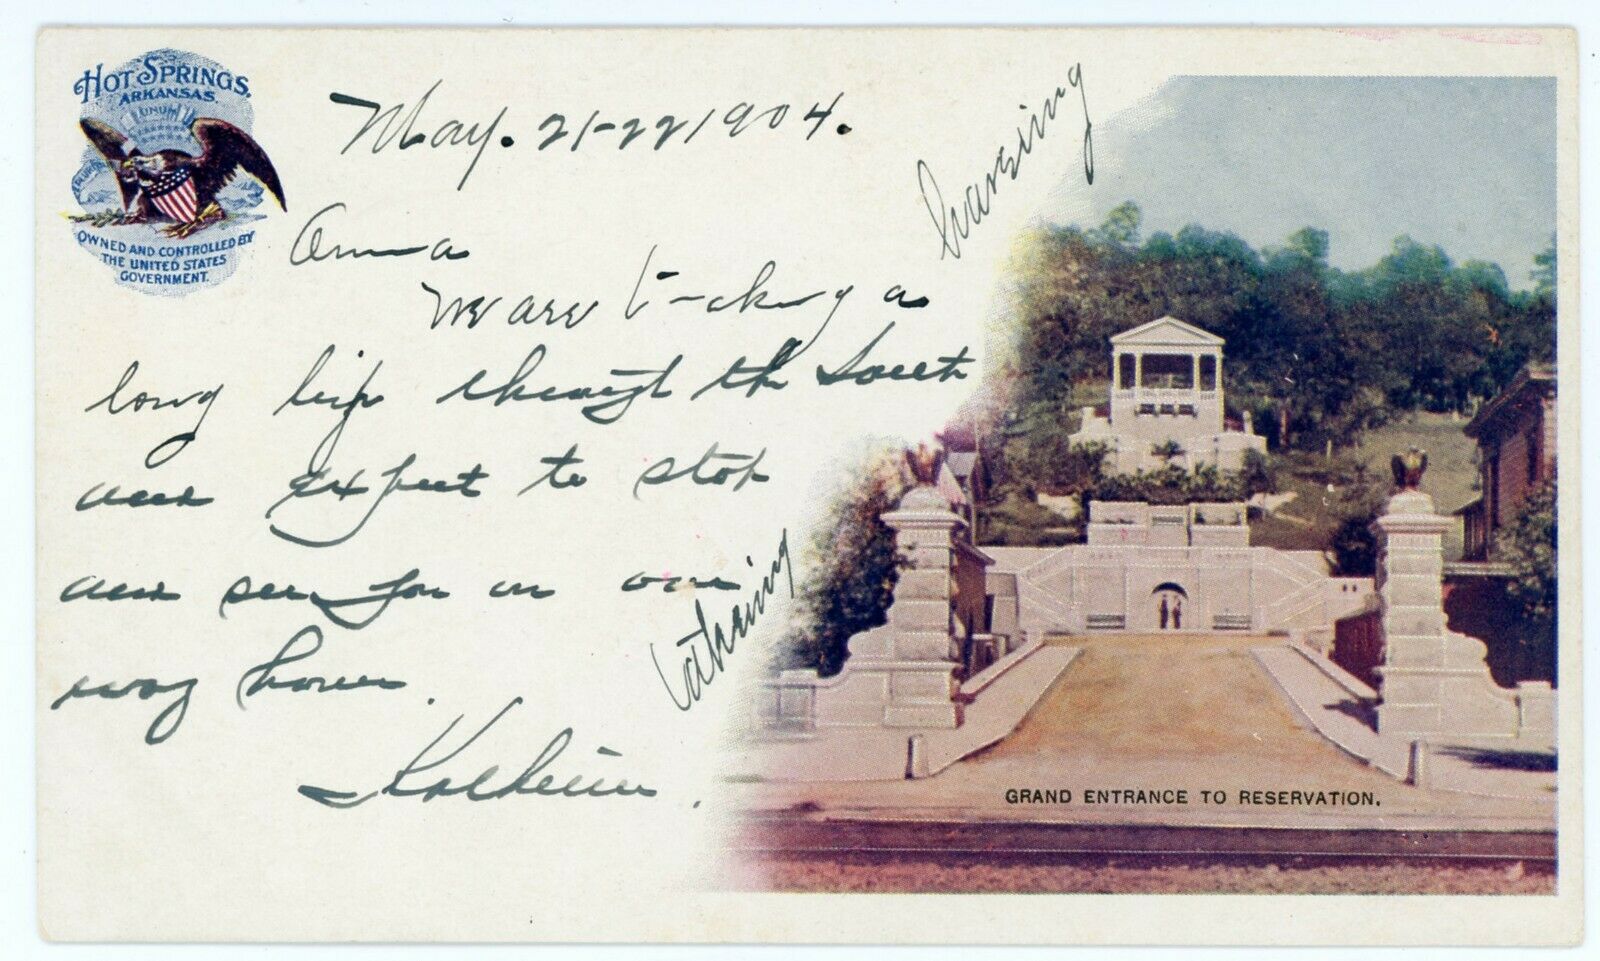 HOT SPRINGS,
ARKANSAS.
UNUM
OWNED AND CONTROLLED BY
THE UNITED STATES
GOVERNMENT.
May. 21-22 1904.
Anna
We are taking a
long trip through the South
and expect to stop
and see you on our
way home.
GRAND ENTRANCE TO RESERVATION.